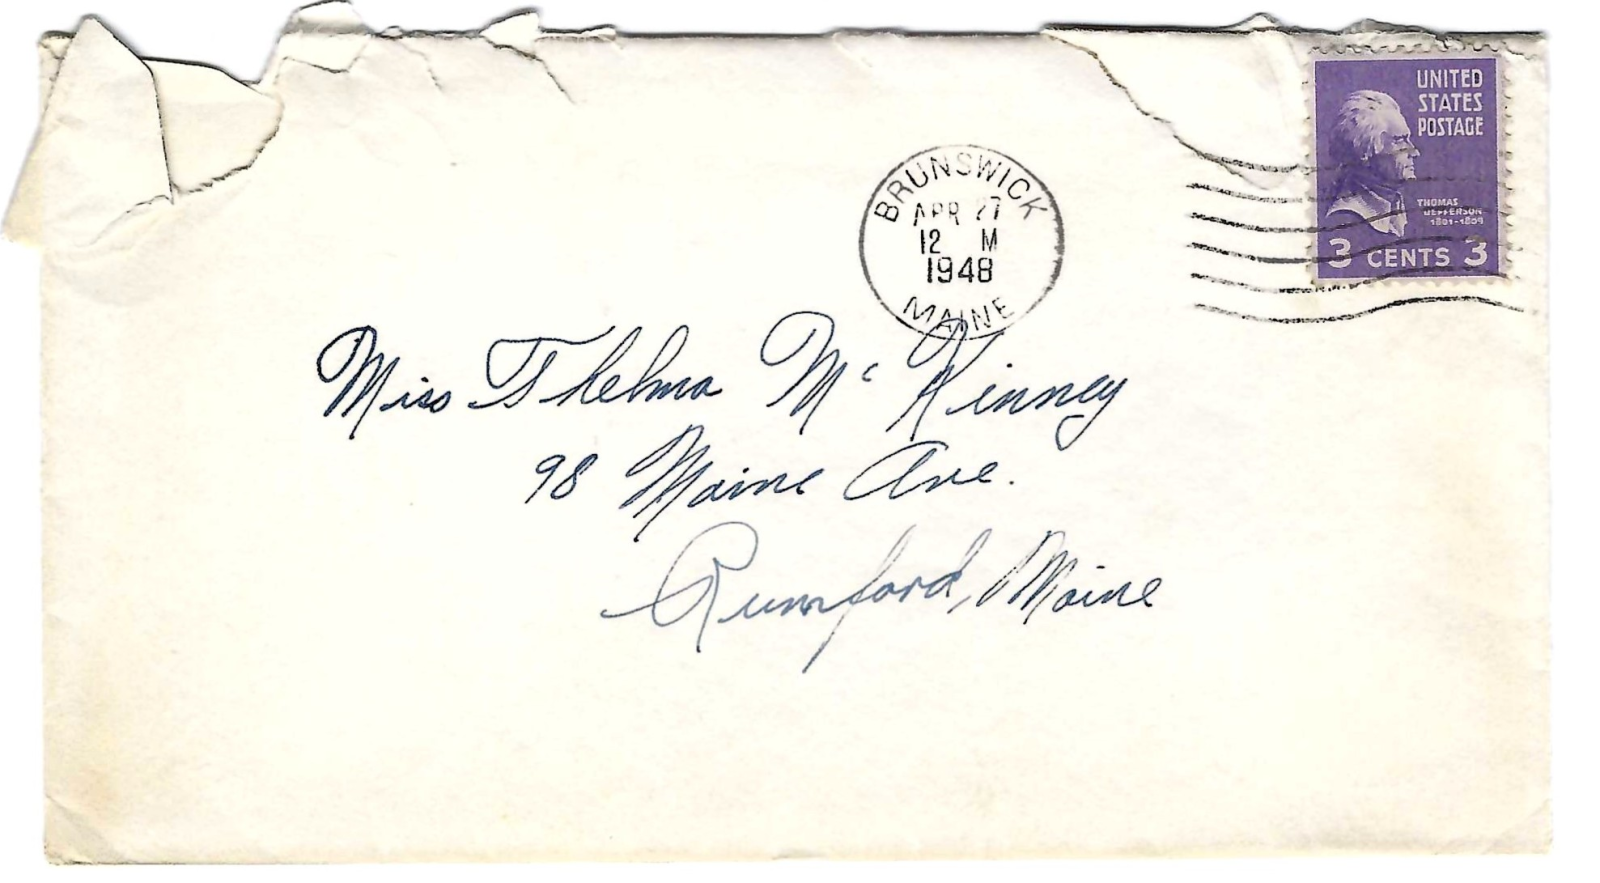 UNITED
STATES
POSTAGE
THOMAS
JEFFERSON
1801-1809
3 CENTS 3
BRUNSWICK
APR 27
12 M
1948
MAINE
Miss Thelma McKinney
98 Maine Ave.
Rumford, Maine